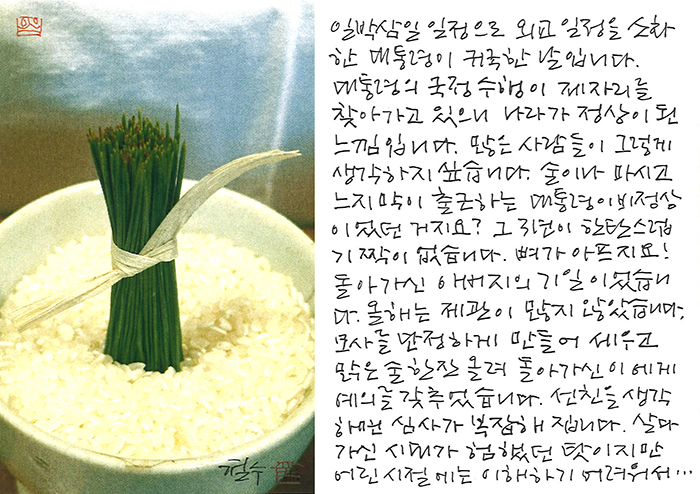 일박삼일 일정으로 외교 일정을 소화
한 대통령이 귀국한 날입니다.
대통령의 국정 수행이 제자리를
찾아가고 있으니 나라가 정상이 된
느낌입니다. 많은 사람들이 그렇게
생각하지 싶습니다. 술이나 마시고
느지막이 출근하는 대통령이 비정상
이었던 거지요? 그 3년이 한탄스럽
기 짝이 없습니다. 뼈가 아프지요!
돌아가신 애비지의 기일이었습니
다. 올해는 제관이 많지 않았습니다.
모사를 단정하게 만들어 세우고
맑은 술 한잔 올려 돌아가신 이에게
예의를 갖추었습니다. 선친을 생각
하면 심사가 복잡해집니다. 살다
가신 시대가 험했던 탓이지만
어린 시절에는 이해하기 어려워서…
철수